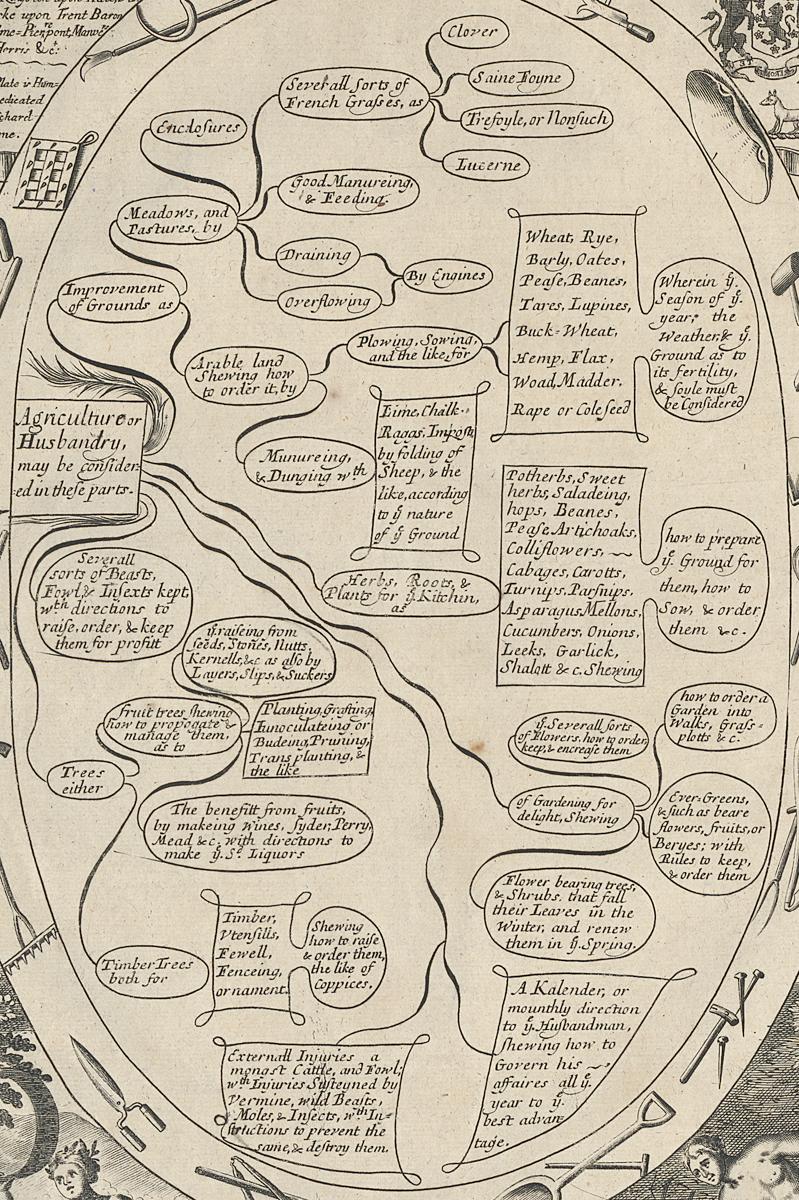 cke upon Trent Baron
me=Pierpont, Manve
Herris &c:
Plate is Hum=
edicated
ichard
me.
Clover
Severall sorts of
French Grasses, as
Saine Foyne
Trefoyle, or Nonsuch
Lucerne
Enclosures
Good Manureing,
& Feeding.
Meadows, and
Pastures, by
Draining
By Engines
Overflowing
Improvement
of Grounds as
Arable land
Shewing how
to order it, by
Plowing, Sowing,
and the like, for
Wheat, Rye,
Barly, Oates,
Pease, Beanes,
Tares, Lupines,
Buck=Wheat,
Hemp, Flax,
Woad, Madder.
Rape or Coleseed
Wherein ye.
Season of ye.
year, the
Weather, & ye.
Ground as to
its fertility,
& soyle must
be Considered
Agriculture or
Husbandry,
may be consider=
ed in these parts.
Munureing,
& Dunging wth
Lime, Chalk..
Raggs, Impost,
by folding of
Sheep, & the
like, according
to ye nature
of ye Ground
Herbs, Roots, &
Plants for ye Kitchin,
as
Potherbs, Sweet
herbs, Saladeing,
hops, Beanes,
Pease Artichoaks,
Colliflowers,
Cabages, Carotts,
Turnips, Parsnips,
Asparagus Mellons,
Cucumbers, Onions,
Leeks, Garlick,
Shalott & c. Shewing
how to prepare
ye. Ground for
them, how to
Sow, & order
them &c.
Severall
sorts of Beasts,
Fowl, & Insexts kept,
wth directions to
raise, order, & keep
them for profitt
ye raiseing from
seeds, Stones, Nutts,
Kernells, &c as also by
Layers, Slips, & Suckers
fruit trees, shewing
how to propogate &
manage them,
as to
Planting, Grafting,
Innoculateing or
Budeing, Pruning,
Transplanting, &
the like
Trees
either
The benefitt from fruits,
by makeing wines, Syder, Perry,
Mead &c. with directions to
make ye. Sd. Liquors
ye. Severall sorts
of Flowers, how to order
keep, & encrease them
how to order a
Garden into
Walks, Grass=
plotts &c.
of Gardening for
delight, Shewing
Ever=Greens,
& such as beare
flowers, fruits, or
Beryes; with
Rules to keep,
& order them
Flower bearing trees,
& Shrubs, that fall
their Leaves in the
Winter, and renew
them in ye. Spring.
Timber Trees
both for
Timber,
Vtensills,
Fewell,
Fenceing,
or nament.
Shewing
how to raise
& order them,
the like of
Coppices.
Externall Injuries a
mongst Cattle, and Fowl;
wth Injuries Susteyned by
Vermine, wild Beasts,
Moles, & Insects, wth In=
structions to prevent the
same, & destroy them.
A Kalender, or
mounthly direction
to ye. Husbandman,
shewing how to
Govern his
affaires all ye.
year to ye.
best advan
tage.